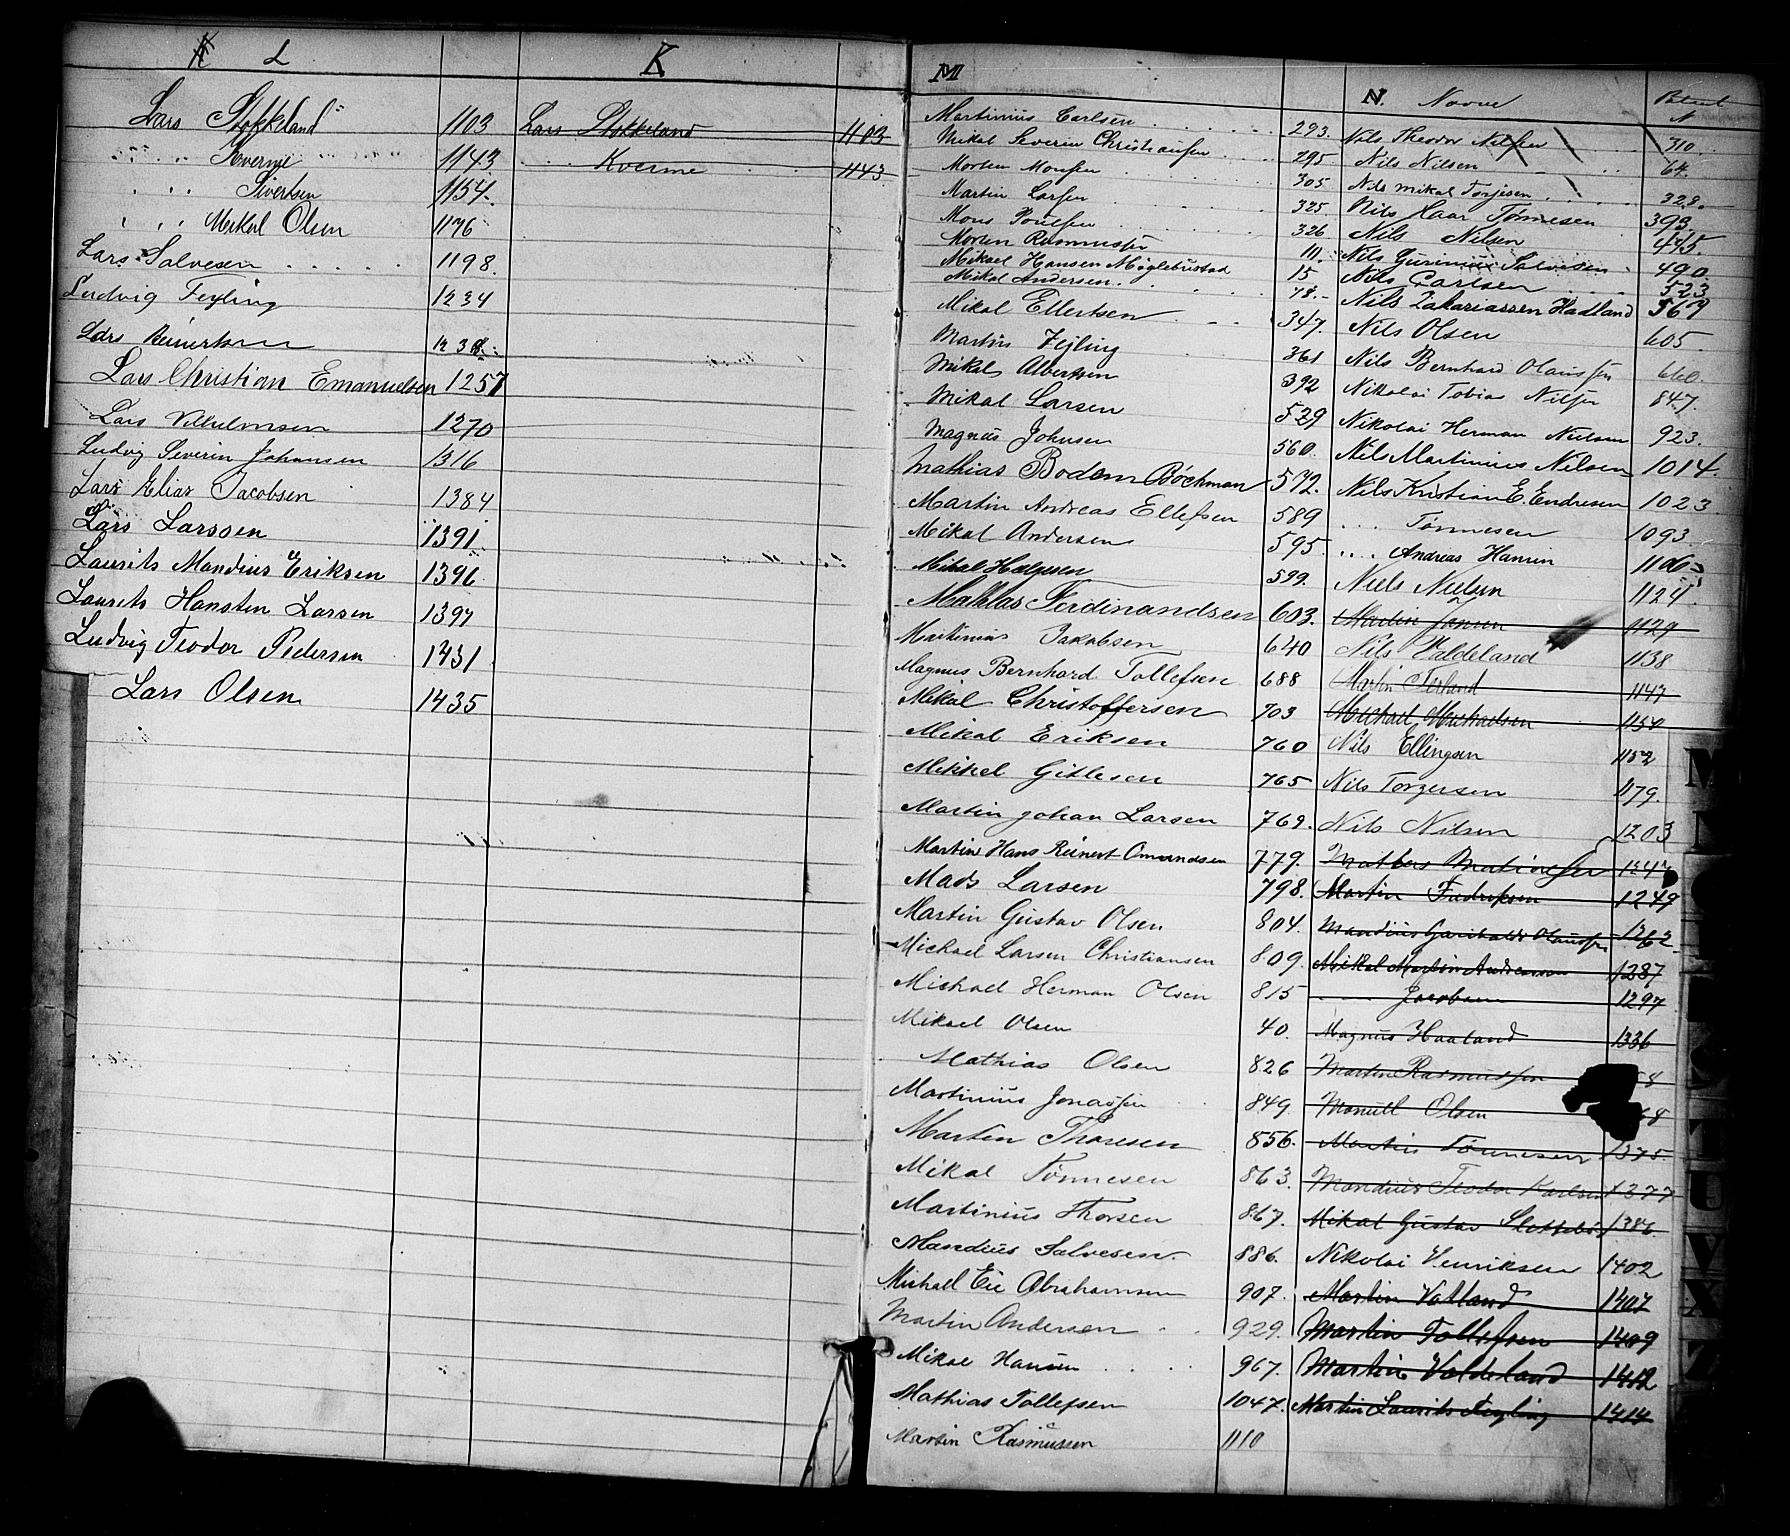 K L
Lars Stokkeland 1103
" " Kverme " " 1143
" " Sivertsen 1154
" " Mikal Olsen 1176
Lars Salvesen 1198
Ludvig Feyling 1234
Lars Reinertsen 1238
Lars Christian Emanuelsen 1257
Lars Vilhelmsen 1270
Ludvig Severin Johansen 1316
Lars Elias Jacobsen 1384
Lars Larssen 1391
Laurits Mandius Eriksen 1396
Laurits Hansten Larsen 1397
Ludvig Teodor Pedersen 1431
Lars Olsen 1435
K
Lars Stokkeland 1103
" " Kverme 1143
M
Martinius Carlsen 293.
Mikal Severin Christiansen 295
Morten Monsen 305
Martin Larsen 325
Mons Ponsen 326
Morten Rasmussen 111.
Mikael Hansen Møglebustad 15
Mikal Andersen 78.
Mikal Ellertsen 347.
Martin Fejling 361
Mikal Albertsen 392
Mikal Larsen 529
Magnus Johnsen 560.
Mathias Bodom Bøchman 572.
Martin Andreas Ellefsen 589
Mikal Andersen 595
Mikal Helgesen 599.
Mathias Ferdinandsen 603.
Martinius Jakobsen 640
Magnus Bernhard Tollefsen 688
Mikal Christoffersen 703
Mikal Eriksen 760
Mikkel Gitlesen 765
Martin Johan Larsen 769.
Martin Hans Reinert Omundsen 779.
Mads Larsen 798.
Martin Gustav Olsen 804.
Michael Larsen Christiansen 809.
Michael Herman Olsen 815
Mikael Olsen 40.
Mathias Olsen 826
Martinius Jonassen 849.
Martin Thoresen 856.
Mikal Tönnesen 863.
Martinius Thorsen 867.
Mandius Salvesen 886.
Michael Eie Abrahamsen 907.
Martin Andersen 929.
Mikal Hansen 967.
Mathias Tollefsen 1047.
Martin Rasmussen 1110
N. Navne
Nils Theodor Nilsen 710.
Nils Nilsen 64.
Nils Mikal Torjesen 328.
Nils Haar Tönnesen 393.
Nils Nilsen 445.
Nils Gurinius Salvesen 490
Nils Carlsen 523
Nils Zakariassen Hadland 569
Nils Olsen 605.
Nils Bernhard Olaussen 660.
Nikolai Tobias Nilsen 847.
Nikolai Herman Nielsen 923.
Nils Martinius Nilsen 1014.
Nils Kristian E. Endresen 1023
" " Tönnesen 1093
" " Andreas Hansen 1106
Niels Nielsen 1124
Martin Jansen 1129
Nils Valdeland 1138
Martin Terland 1147
Michael Michaelsen 1150
Nils Ellingsen 1152
Nils Torgersen 1179.
Nils Nilsen 1203
Martin Fredriksen 1249
Mandius Garibaldi Olaussen 1262
Mikal Martin Andreasen 1287
" " Jacobsen 1297
Magnus Haaland 1336
Martin Rasmussen
Manuel Olsen
Martin Tönnesen 1375.
Mandius Teodor Karlsen 1377
Mikal Gustav Slettebö 1386.
Nikolai Henriksen 1402
Martin Vatland 1407
Martin Tollefsen 1409
Martin Valdeland 1412
Martin Laurits Feyling 1414
M
N
O
S
T
U
V
X
Z